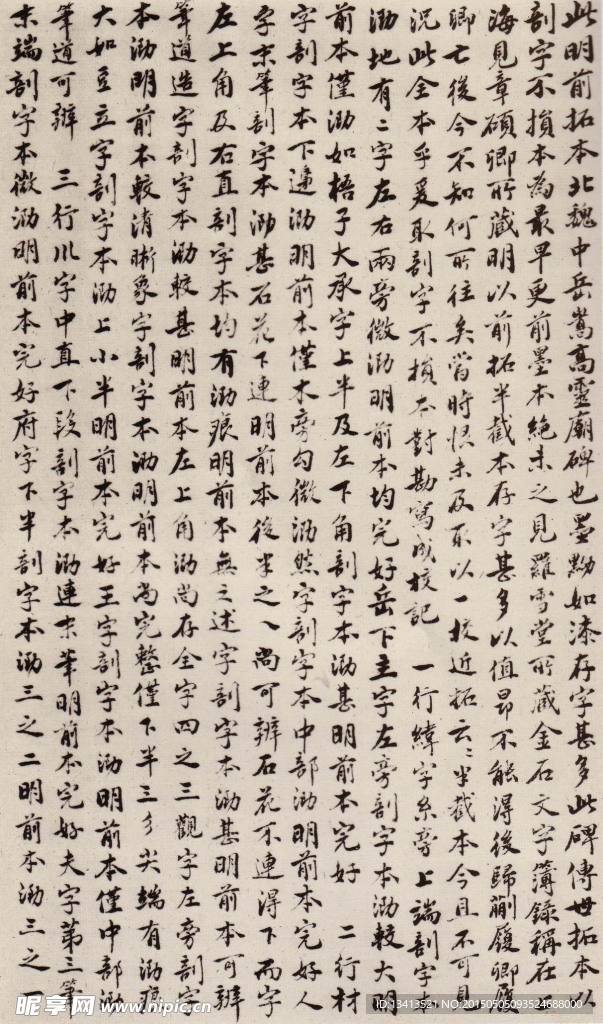 此明前拓本北魏中岳嵩高靈廟碑也墨黝如漆存字甚多此碑傳世拓本以
剖字不損本為最早更前墨本絶未之見羅雪堂所藏金石文字簿錄稱在
海見章碩卿所藏明以前拓半截本存字甚多以值昂不能得後歸蒯履卿履
卿亡後今不知何所往矣當時恨未及取以一校近拓云云半截本今且不可見
況此全本乎爰取剖字不損本對勘寫成校記 一行緯字糸旁上端剖字本
泐地有二字左右兩旁微泐明前本均完好岳下主字左旁剖字本泐較大明
前本僅泐如梧子大承字上半及左下角剖字本泐甚明前本完好 二行材
字剖字本下邊泐明前本僅木旁勾微泐然字剖字本中部泐明前本完好人
字末筆剖字本泐甚石花下連明前本後半之乀尚可辨石花不連得下而字
左上角及右直剖字本均有泐痕明前本無之述字剖字本泐甚明前本可辨
筆道造字剖字本泐較甚明前本左上角泐尚存全字四之三觀字左旁剖字
本泐明前本較清晰象字剖字本泐明前本尚完整僅下半三多尖端有泐痕
大如豆立字剖字本泐上小半明前本完好王字剖字本泐明前本僅中部泐
筆道可辨 三行川字中直下段剖字本泐連末筆明前本完好夫字第三筆
末端剖字本微泐明前本完好府字下半剖字本泐三之二明前本泐三之一
昵享网 www.nipic.cn
ID:13413521 NO:20150505093524688000